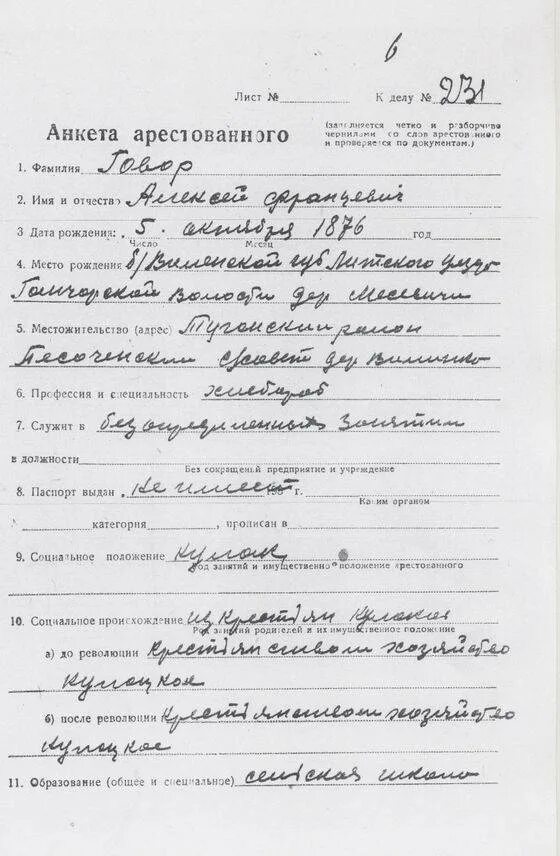 6
Лист № К делу № 231
Анкета арестованного
(заполняется четко и разборчиво
чернилами со слов арестованного
и проверяется по документам.)
1. Фамилия Говор
2. Имя и отчество Алексей Францевич
3 Дата рождения: 5. октября 1876 год
Число Месяц
4. Место рождения б/Виленской губ Литского уезда
Гончарской волости дер Месевичи
5. Местожительство (адрес) Туганский район
Песоченский с/совет дер Вилинко
6. Профессия и специальность хлебороб
7. Служит в без определенных занятии
в должности
Без сокращений предприятие и учреждение
8. Паспорт выдан не имеет 193 г.
Каким органом
категория , прописан в
9. Социальное положение Кулак
Род занятий и имущественное положение арестованного
10. Социальное происхождение из Крестьян Кулаков
Род занятий родителей и их имущественное положение
а) до революции Крестьянсивом хозяйство
кулацкое
б) после революции Крестьянством хозяйство
кулацкое
11. Образование (общее и специальное) сельская школа